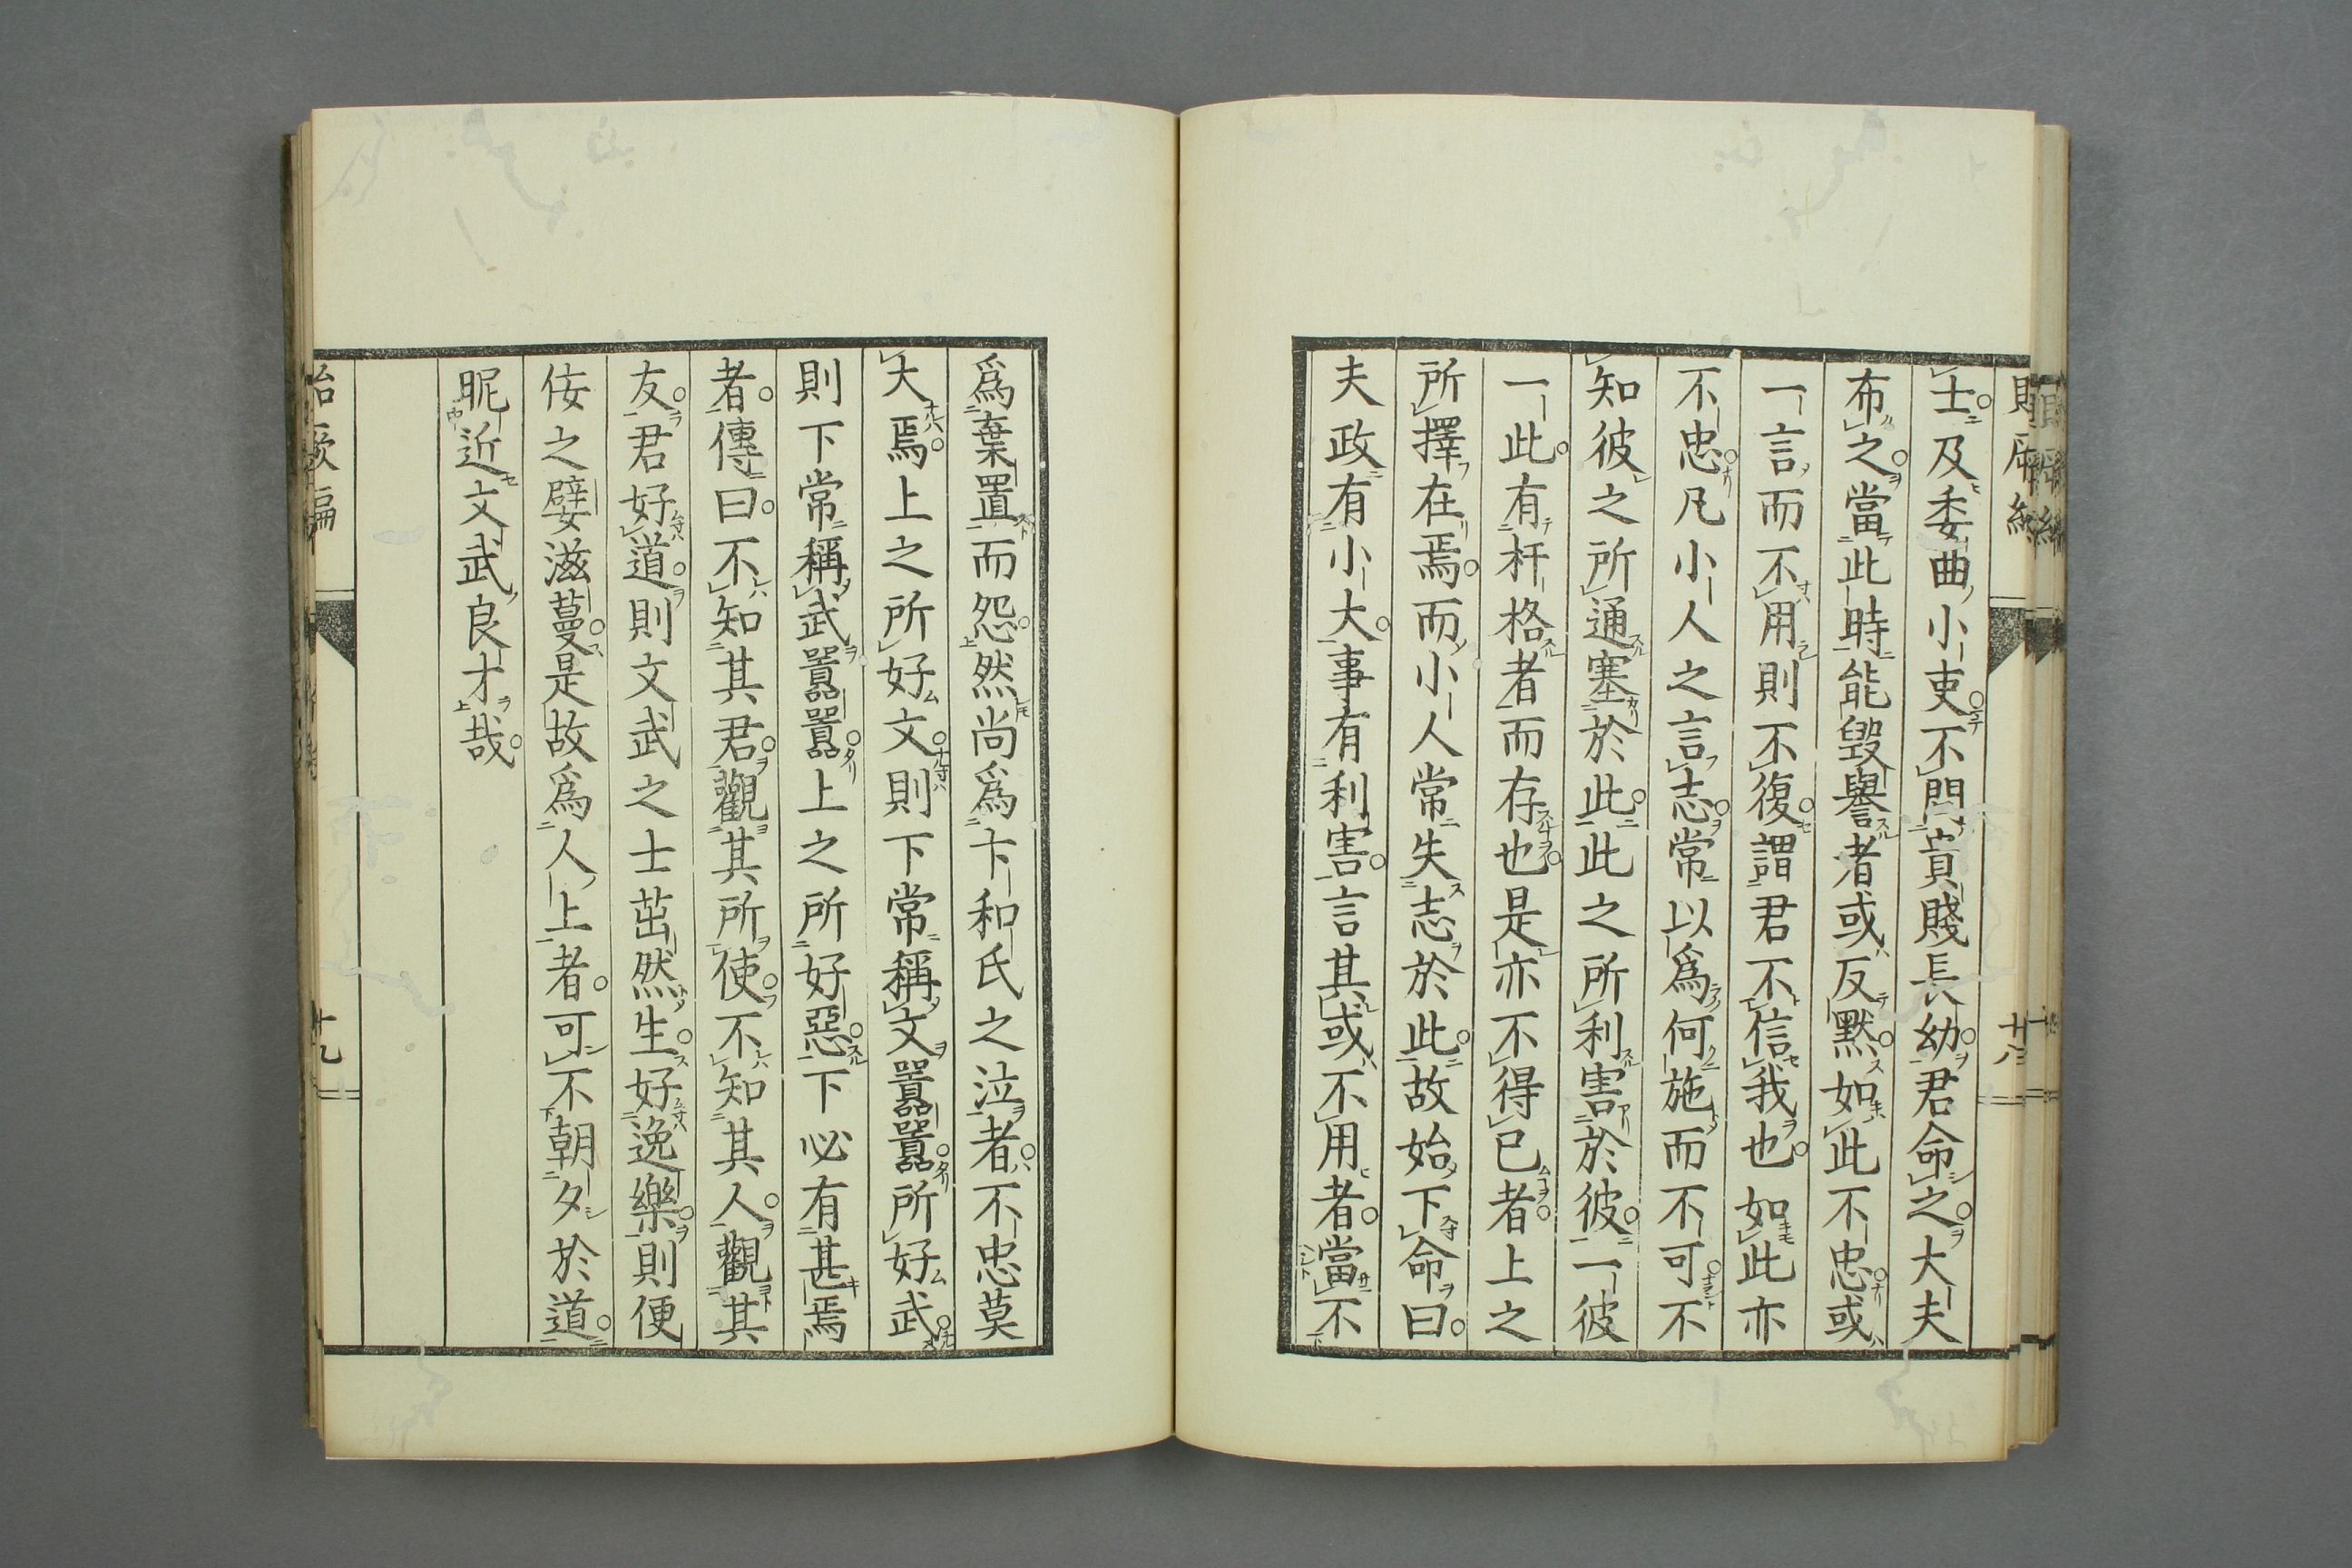 士及委曲小吏不問貴賤長幼君命之大夫
布之當此時能毀譽者或反默如此不忠或
一言而不用則不復謂君不信我也如此亦
不忠凡小人之言志常以爲何施而不可不
知彼之所通塞於此此之所利害於彼一彼
一此有杆格者而存也是亦不得已者上之
所擇在焉而小人常失志於此故始下命曰
夫政有小大事有利害言其或不用者當不
爲棄置而怨然尚爲卞和氏之泣者不忠莫
大焉上之所好文則下常稱文嚚嚚所好武
則下常稱武嚚嚚上之所好惡下必有甚焉
者傳曰不知其君觀其所使不知其人觀其
友君好道則文武之士茁然生好逸樂則便
佞之嬖滋蔓是故爲人上者可不朝夕於道
昵近文武良才哉
貽厥編
十九